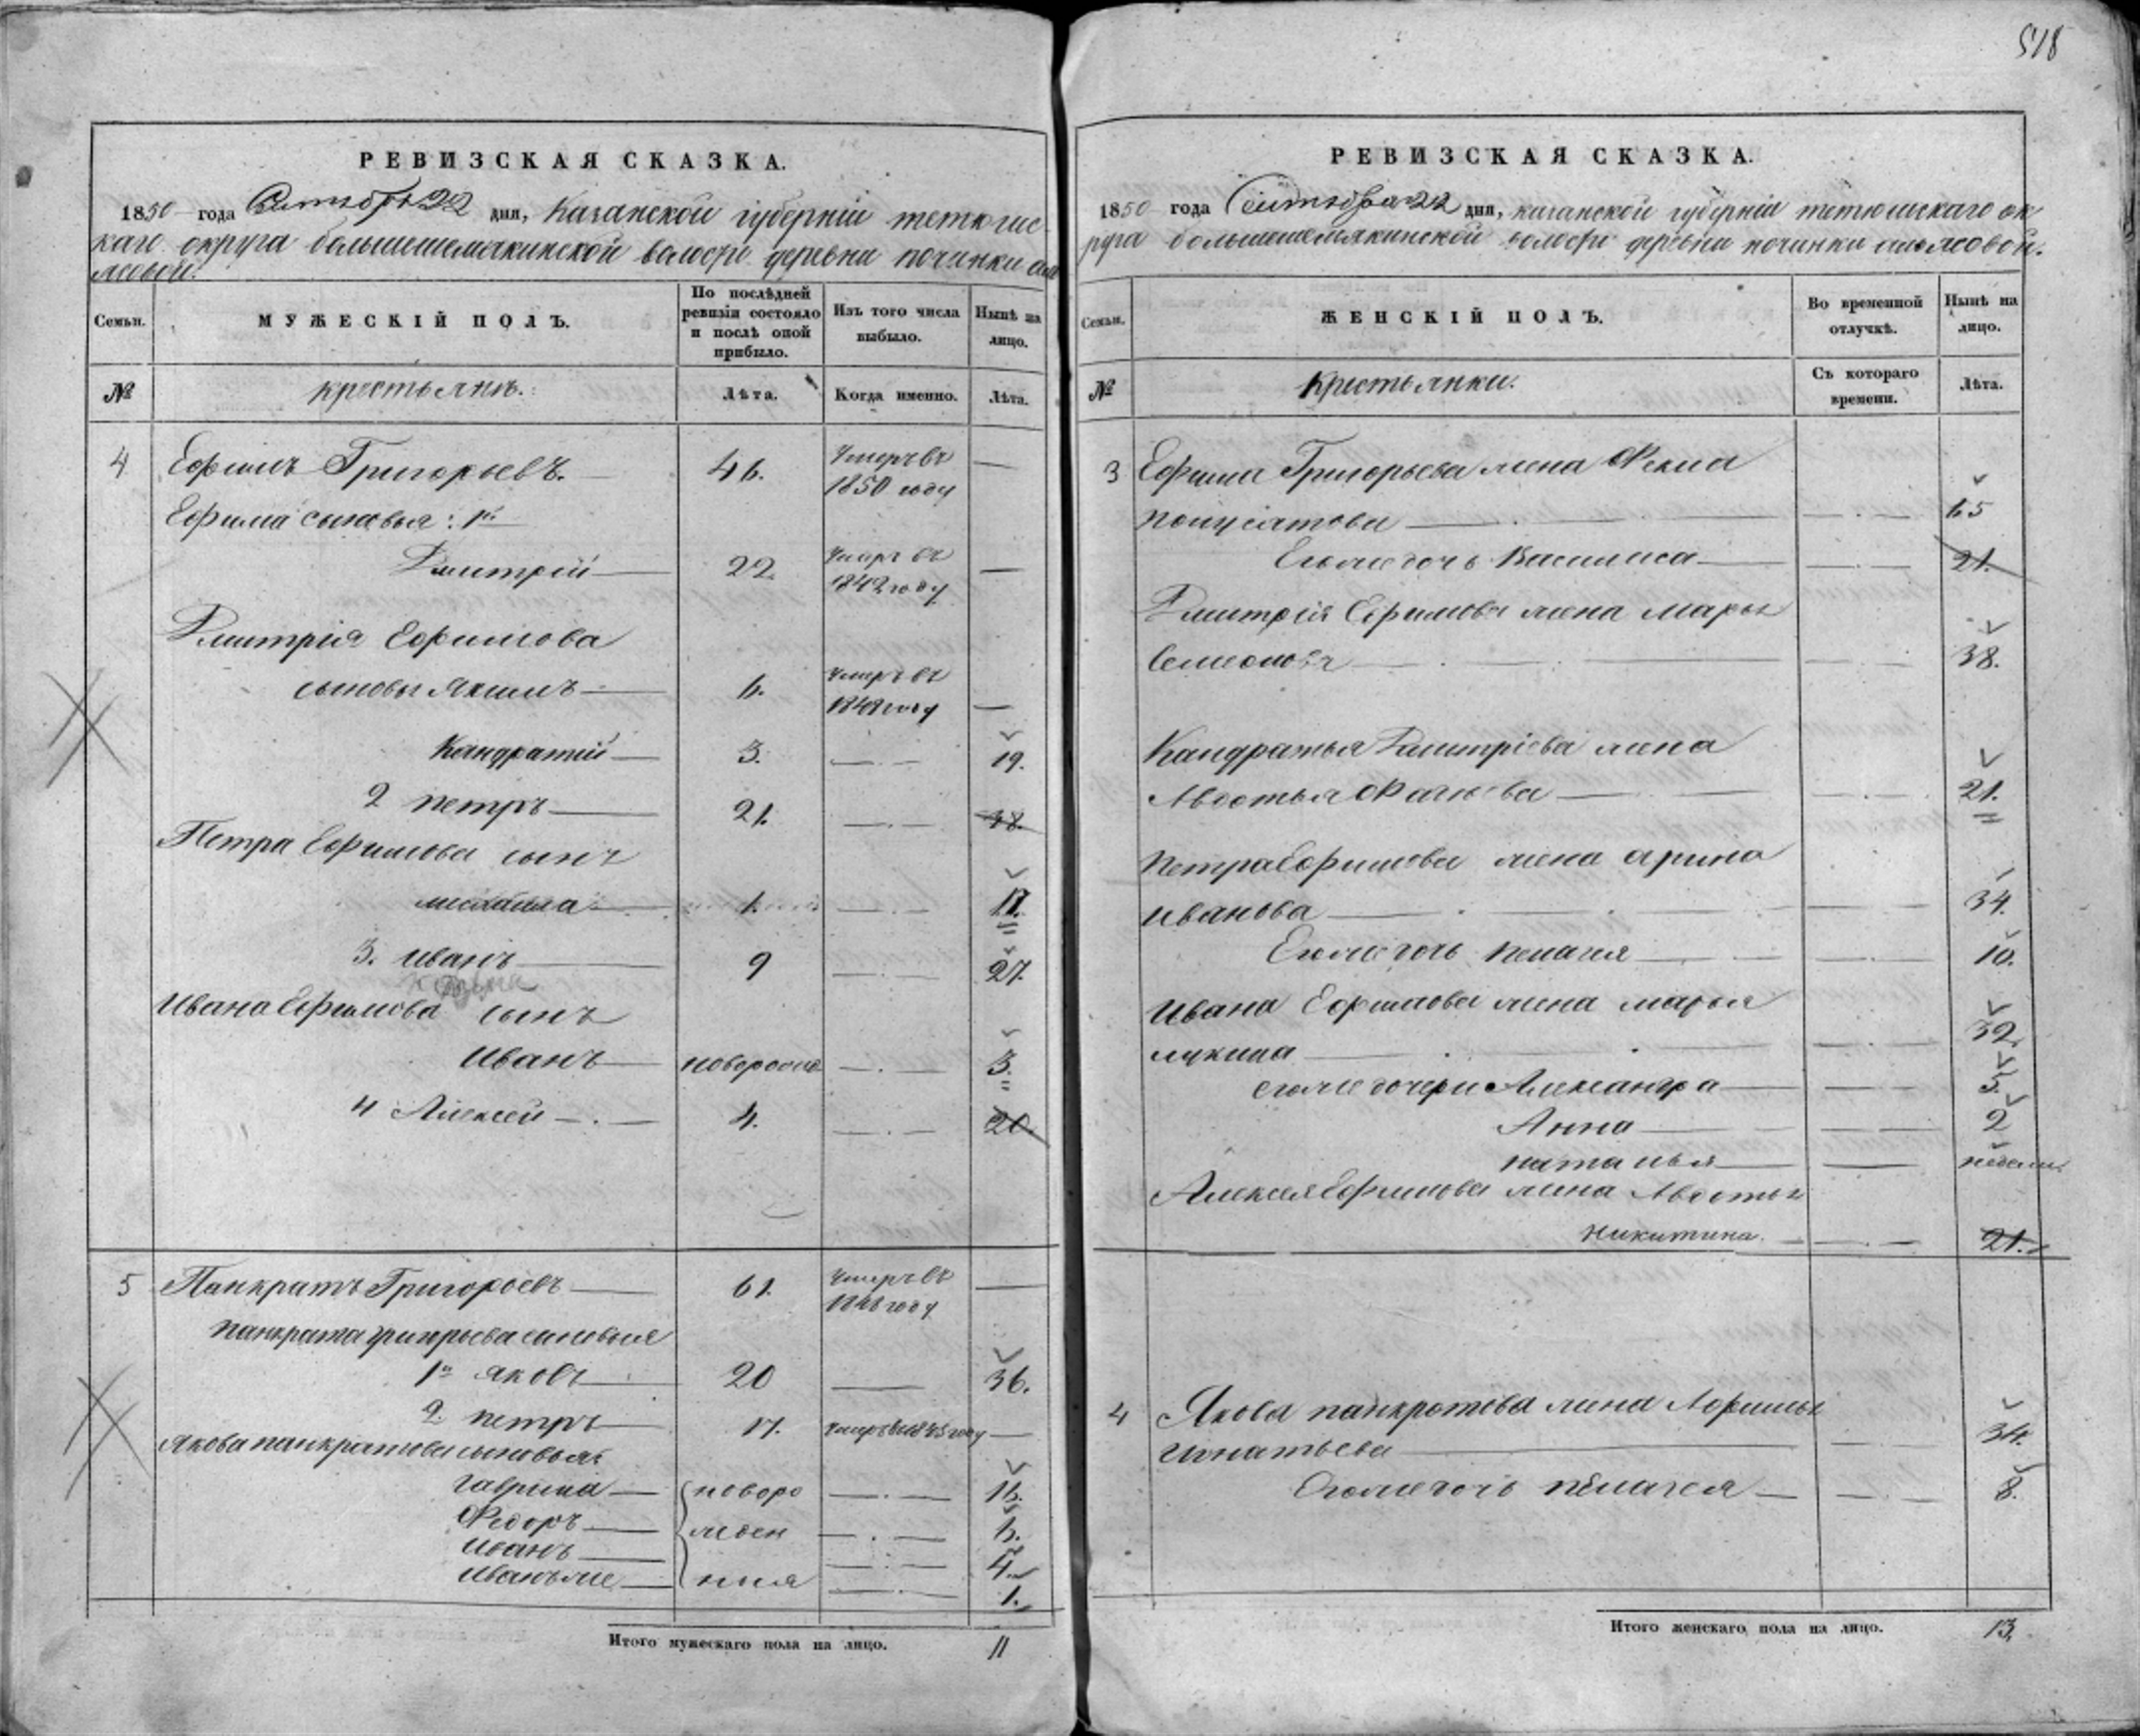 518
РЕВИЗСКАЯ СКАЗКА.
1850 года Сентября 22 дня, Казанской губерніи тетюшс-
каго округа большешемякинской волости деревни починки
лсовой.
Семьи.
МУЖЕСКІЙ ПОЛЪ.
По послѣдней ревизіи состояло и послѣ оной прибыло.
Изъ того числа выбыло.
Нынѣ на лицо.
№
крестьянъ.
Лѣта.
Когда именно.
Лѣта.
4 Ефимъ Григорьевъ. 46. Умеръ въ 1850 году —
Ефима сыновья: 1й
Дмитрій 22. умеръ въ 1842 году —
Дмитрія Ефимова
сыновья Якимъ 6. умеръ въ году —
Кандратий 3. 19.
2 петръ 21. 38.
Петра Ефимова сынъ
михаила 1. 17.
3. иванъ 9 27.
Ивана Ефимова сынъ
Иванъ новорожд 3.
4 Алексей 4. 20.
5 Панкратъ Григорьевъ 61. умеръ въ году —
панкрата григорьева сыновья
1й яковъ 20 36.
2. петръ 17. умеръ въ 1845 году —
Якова панкратова сыновья
гаврила новоро 16.
Федоръ жден 6.
иванъ 4.
иванъ же ныя 1.
Итого мужескаго пола на лицо. 11
РЕВИЗСКАЯ СКАЗКА.
1850 года Сентября 22 дня, казанской губерніи тетюшскаго ок
руга большешемякинской волости деревни починки
Семьи.
ЖЕНСКІЙ ПОЛЪ.
Во временной отлучкѣ.
Нынѣ на лицо.
№
Крестьянки.
Съ котораго времени.
Лѣта.
3 Ефима Григорьева жена
65
Ево же дочь Василиса 21.
Дмитрія Ефимова жена Марья
Семионова 38.
Кандратья Дмитріева жена
Авдотья 21.
петра Ефимова жена арина
иванова 34.
Ево же дочь пелагея 10.
Ивана Ефимова жена марья
лукина 32.
ево же дочери Александра 5.
Анна 2
наталья недели
Алексея Ефимова жена Авдотья
никитина. 21.
4 Якова панкротова жена Афимья
игнатьева 34.
Ево же дочь пелагея 8.
Итого женскаго пола на лицо. 13.